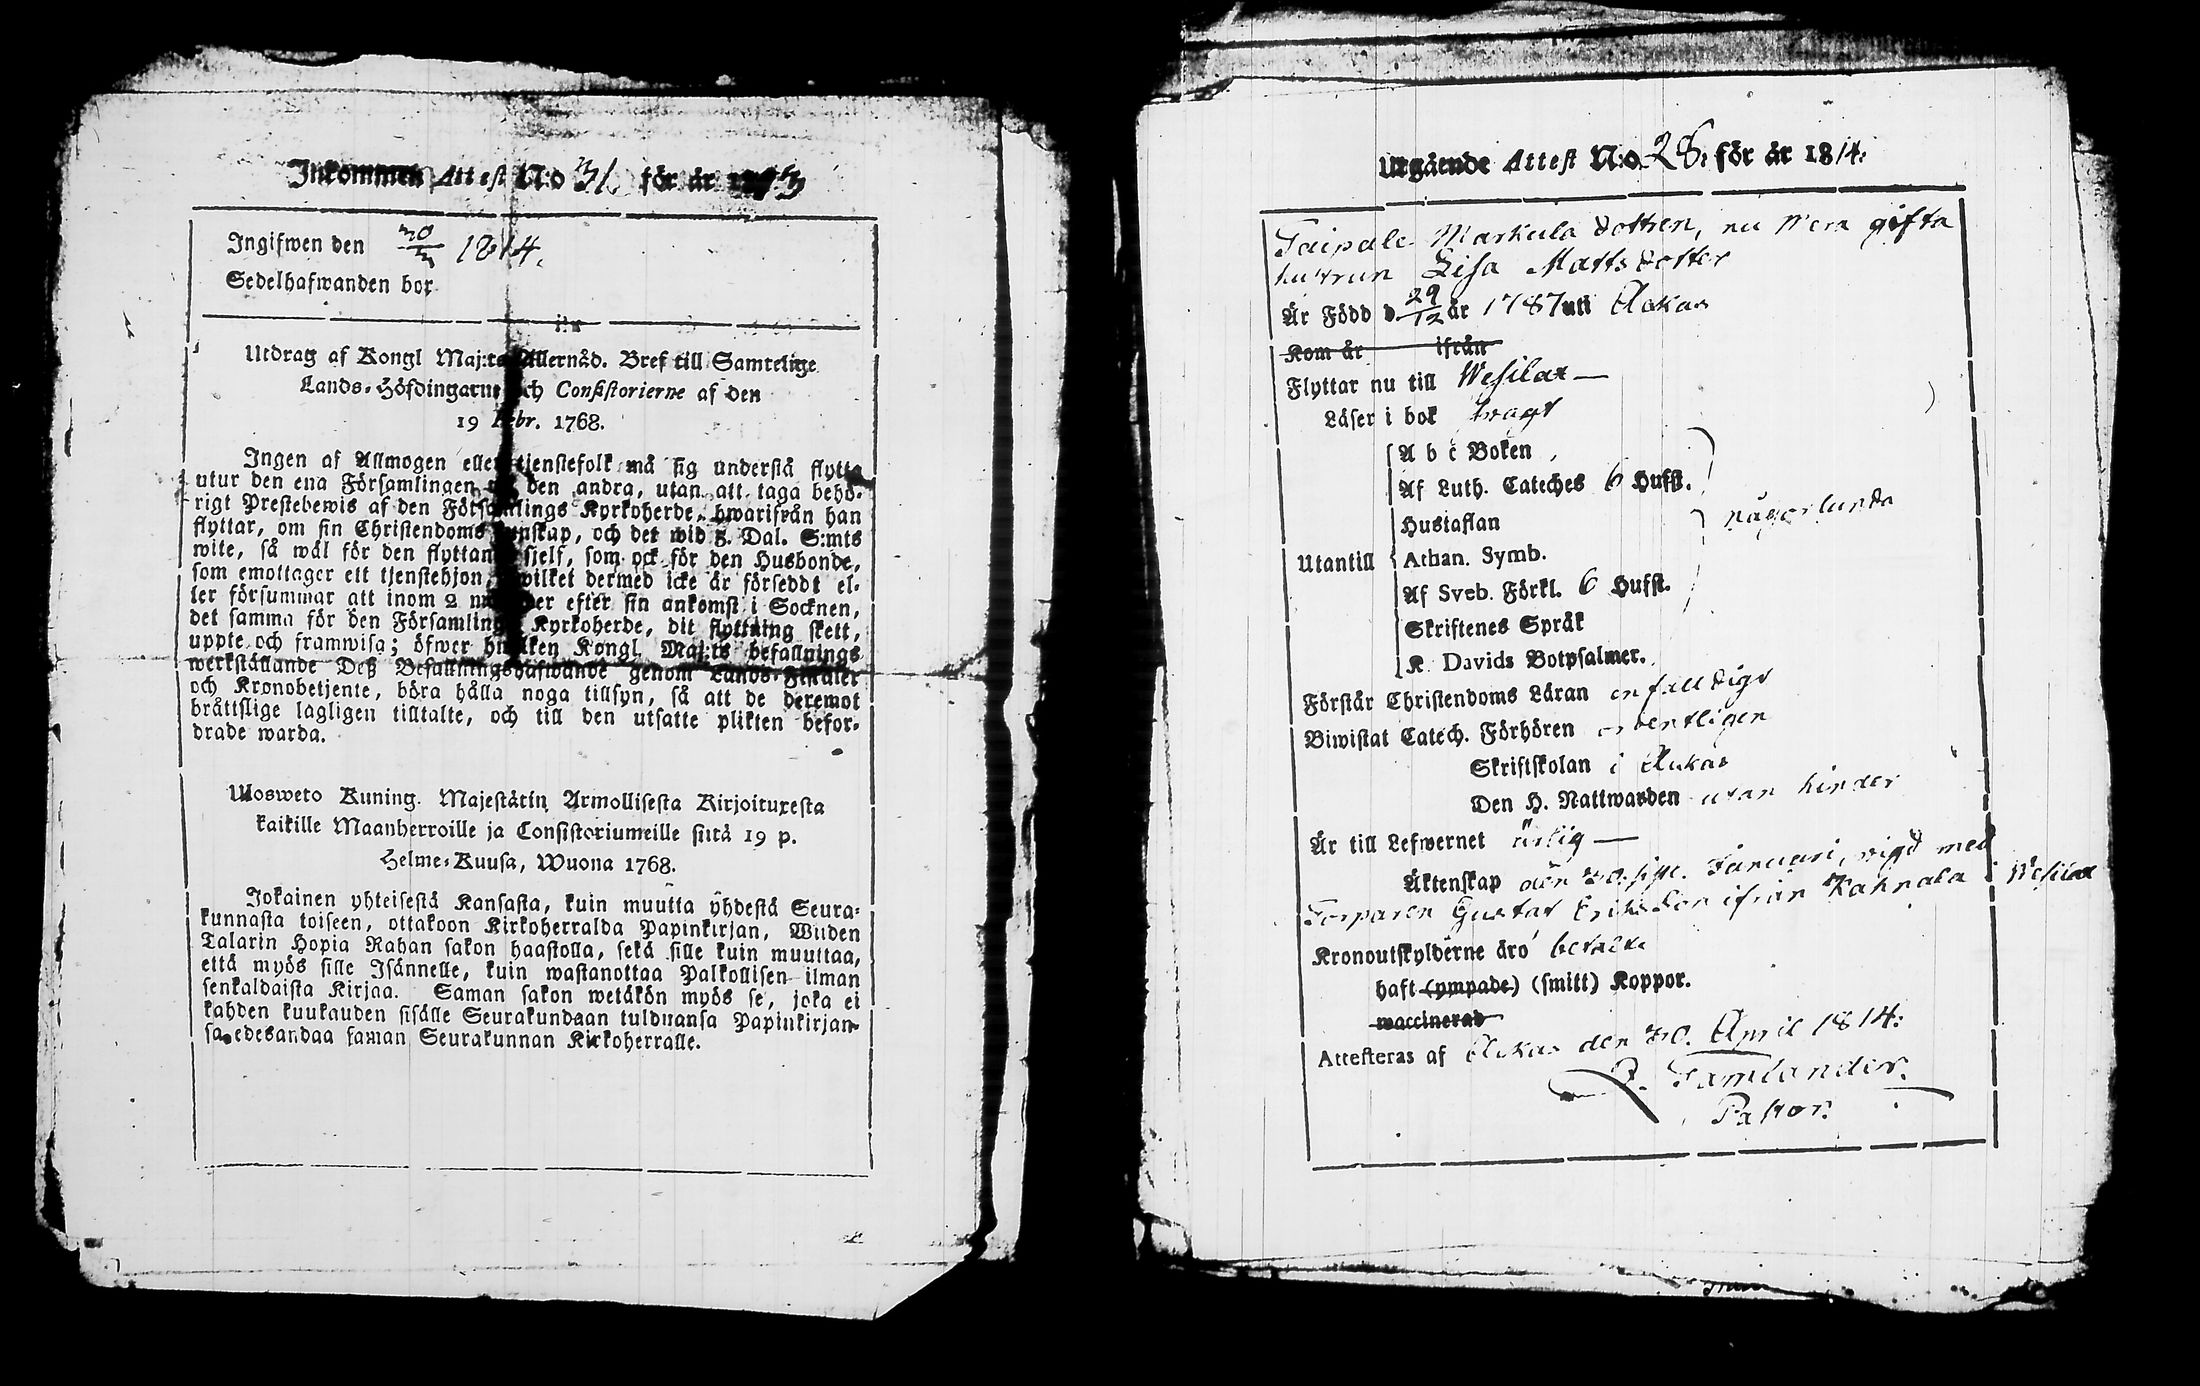 Inkommen Attest N:o 31 för år
Ingifwen den 30/ 1814.
Sedelhafwanden bor
Utdrag af Kongl Maj:ts Allernåd. Bref till Samtelige
Lands-Höfdingarne och Consistorierne af den
19 Febr. 1768.
Ingen af Allmogen eller tjenstefolk må sig understå flytta
utur den ena Församlingen den andra, utan att taga behö-
rigt Prestebewis af den Församlings Kyrkoherde, hwarifrån han
flyttar, om sin Christendoms kunskap, och det wid 5. Dal. S:mts
wite, så wäl för den flyttande sjelf, som ock för den Husbonde,
som emottager ett tjenstehjon, hwilket dermed icke är försedt el-
ler försummar att inom 2 månader efter sin ankomst i Socknen,
det samma för den Församlings Kyrkoherde, dit flyttning skett,
uppte och framwisa; öfwer hwilken Kongl. Maj:ts befallnings
werkställande Deß Befallningshafwande genom Lands-Fiskaler
och Kronobetjente, böra hålla noga tillsyn, så att de deremot
bråttslige lagligen tilltalte, och till den utsatte plikten befor-
drade warda.
Ulosweto Kuning. Majestätin Armollisesta Kirjoituxesta
kaikille Maanherroille ja Consistoriumeille siitä 19 p.
Helme-Kuusa, Wuona 1768.
Jokainen yhteisestä Kansasta, kuin muutta yhdestä Seura-
kunnasta toiseen, ottakoon Kirkoherralda Papinkirjan, Wiiden
Talarin Hopia Rahan sakon haastolla, sekä sille kuin muuttaa,
että myös sille Isännelle, kuin wastanottaa Palkollisen ilman
senkaldaista Kirjaa. Saman sakon wetäkön myös se, joka ei
kahden kuukauden sisälle Seurakundaan tulduansa Papinkirjan-
sa edesandaa saman Seurakunnan Kirkoherralle.
Utgående Attest N:o 28. för år 1814.
Taipale Markula dottren, nu mera gifta
hustrun Lisa Mattsdotter
Är Född d 29/12 år 1787 uti Ackas
Kom år ifrån
Flyttar nu till Wesilax
Läser i bok swagt
A b c Boken
Af Luth. Cateches 6 Hufst.
Hustaflan någorlunda
Utantill Athan. Symb.
Af Sveb. Förkl. 6 Hufst.
Skriftenes Språk
K. Davids Botpsalmer.
Förstår Christendoms Läran enfalldigt
Biwistat Catech. Förhören ordentligen
Skriftskolan i Ackas
Den H. Nattwarden utan hinder
Är till Lefwernet ärlig
Äktenskap den 30. Januari, vigd med
Torparen Gustaf Eriksson ifrån Kahnala i Wesilax
Kronoutskylderne äro betalte
haft (ympade) (smitt) Koppor.
waccinerad
Attesteras af Ackas den 30. April 1814.
Tamlander.
Pastor.